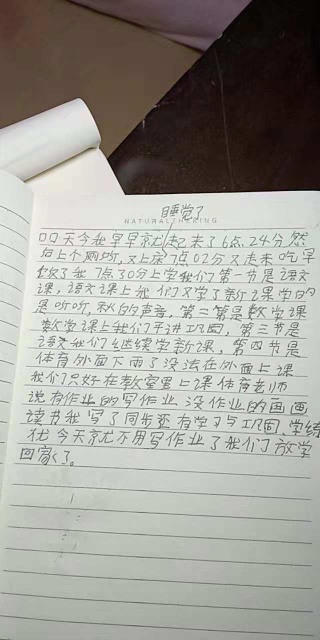 睡觉了
NATURALTHERING
口口天今我早早就起来了6点24分然
后上个厕所,又上床7点02分又起来吃早
饭了我7点30分上学我们第一节是语文
课,语文课上我们又学了新课学的
是听听,秋的声音,第二第是数学课
数学课上我们千讲巩固,第三节是
语文我们继续学新课,第四节是
体育外面下雨了没法在外面上课
我们只好在教室里上课体育老师
说有作业的写作业没作业的画画,
读书我写了同步还有学习与巩固,掌练
优今天就不用写作业了我们放学
回家了。